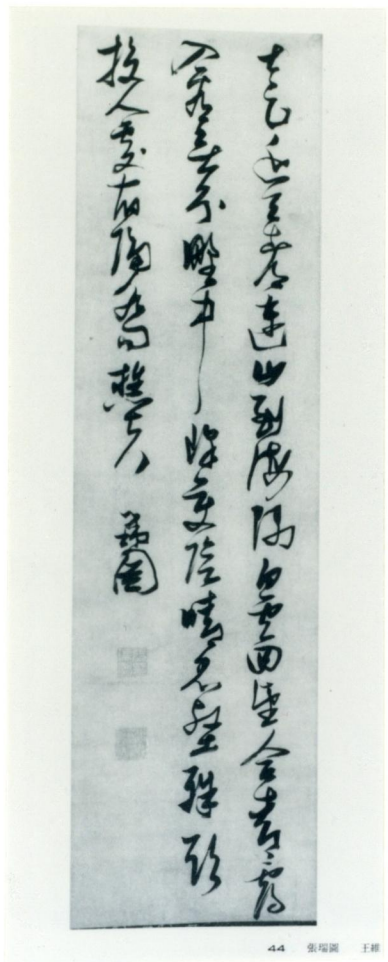 太乙近天都連山到海隅白雲回望合青靄
入看無分野中峰變陰晴衆壑殊欲
投人處宿隔水問樵夫 瑞圖
44 張瑞圖 王維